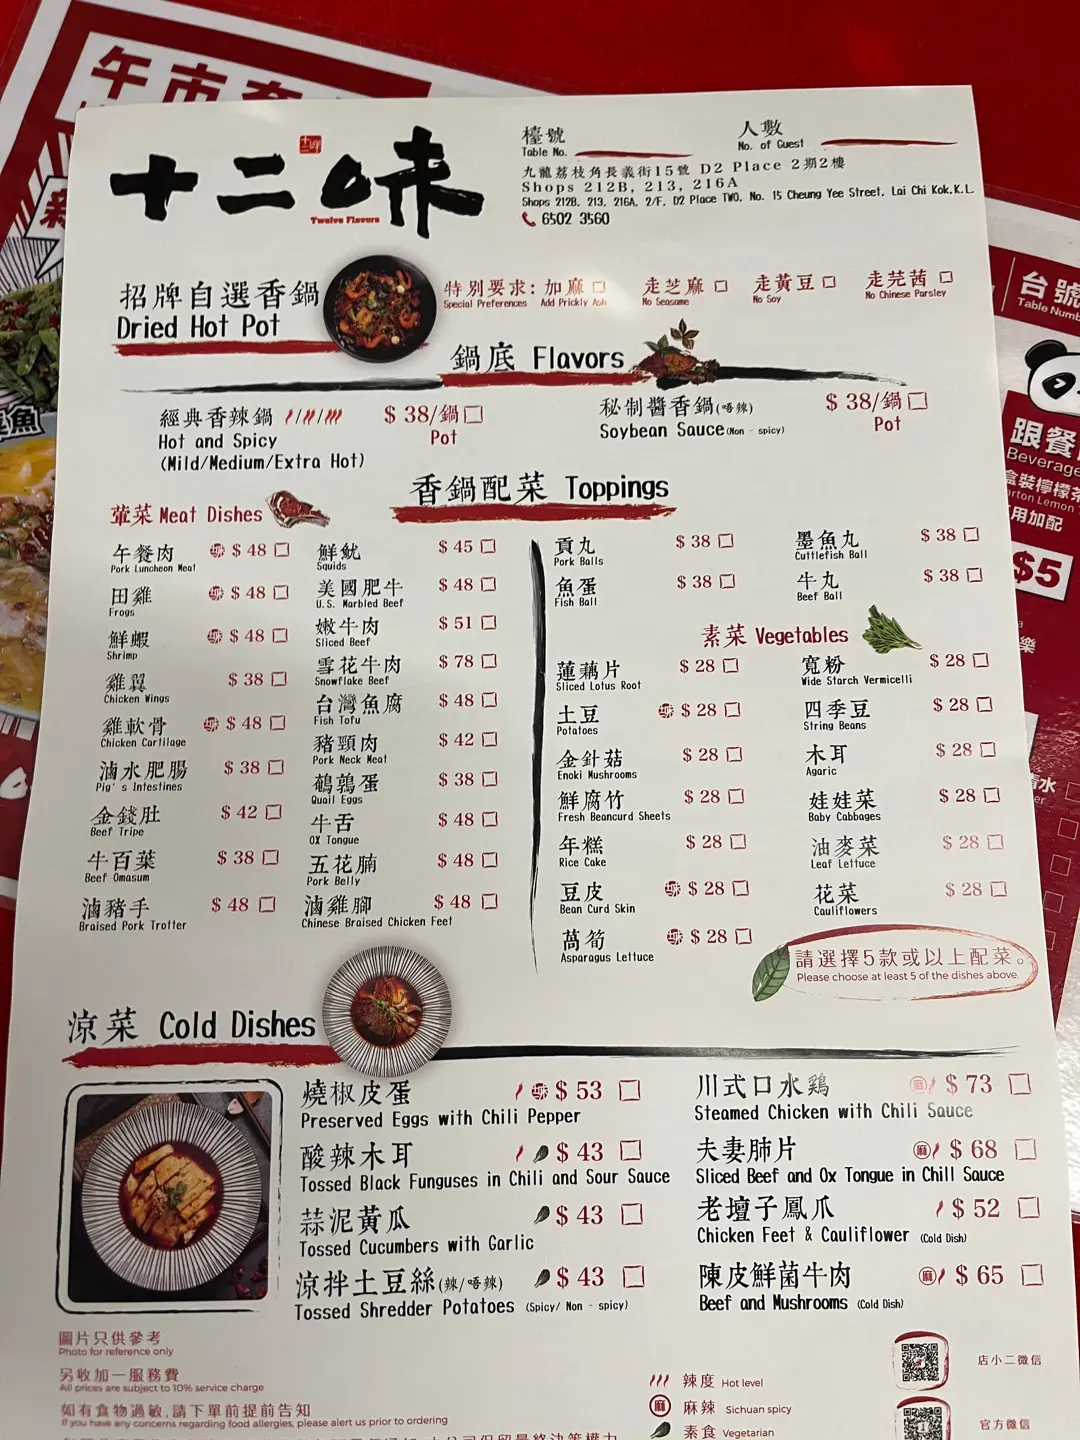 午市套
十二味
Twelve Flavors
檯號
Table No.
人數
No. of Guest
九龍荔枝角長義街15號 D2 Place 2期2樓
Shops 212B, 213, 216A
Shops 212B, 213, 216A, 2/F, D2 Place TWO, No. 15 Cheung Yee Street, Lai Chi Kok,K.L.
6502 3560
招牌自選香鍋
Dried Hot Pot
特別要求: 加麻 走芝麻 走黃豆 走芫茜
Special Preferences Add Prickly Ash No Seasame No Soy No Chinese Parsley
鍋底 Flavors
經典香辣鍋 $ 38/鍋
Hot and Spicy Pot
(Mild/Medium/Extra Hot)
秘制醬香鍋(唔辣) $ 38/鍋
Soybean Sauce(Non - spicy) Pot
香鍋配菜 Toppings
葷菜 Meat Dishes
午餐肉 $ 48
Pork Luncheon Meat
田雞 $ 48
Frogs
鮮蝦 $ 48
Shrimp
雞翼 $ 38
Chicken Wings
雞軟骨 $ 48
Chicken Cartilage
滷水肥腸 $ 38
Pig's Intestines
金錢肚 $ 42
Beef Tripe
牛百葉 $ 38
Beef Omasum
滷豬手 $ 48
Braised Pork Trotter
鮮魷 $ 45
Squids
美國肥牛 $ 48
U.S. Marbled Beef
嫩牛肉 $ 51
Sliced Beef
雪花牛肉 $ 78
Snowflake Beef
台灣魚腐 $ 48
Fish Tofu
豬頸肉 $ 42
Pork Neck Meat
鵪鶉蛋 $ 38
Quail Eggs
牛舌 $ 48
OX Tongue
五花腩 $ 48
Pork Belly
滷雞腳 $ 48
Chinese Braised Chicken Feet
貢丸 $ 38
Pork Balls
魚蛋 $ 38
Fish Ball
墨魚丸 $ 38
Cuttlefish Ball
牛丸 $ 38
Beef Ball
素菜 Vegetables
蓮藕片 $ 28
Sliced Lotus Root
土豆 $ 28
Potatoes
金針菇 $ 28
Enoki Mushrooms
鮮腐竹 $ 28
Fresh Beancurd Sheets
年糕 $ 28
Rice Cake
豆皮 $ 28
Bean Curd Skin
萵筍 $ 28
Asparagus Lettuce
寬粉 $ 28
Wide Starch Vermicelli
四季豆 $ 28
String Beans
木耳 $ 28
Agaric
娃娃菜 $ 28
Baby Cabbages
油麥菜 $ 28
Leaf Lettuce
花菜 $ 28
Cauliflowers
請選擇5款或以上配菜。
Please choose at least 5 of the dishes above.
涼菜 Cold Dishes
燒椒皮蛋 $ 53
Preserved Eggs with Chili Pepper
酸辣木耳 $ 43
Tossed Black Funguses in Chili and Sour Sauce
蒜泥黃瓜 $ 43
Tossed Cucumbers with Garlic
涼拌土豆絲(辣/唔辣) $ 43
Tossed Shredder Potatoes (Spicy/ Non - spicy)
川式口水鷄 麻 $ 73
Steamed Chicken with Chili Sauce
夫妻肺片 麻 $ 68
Sliced Beef and Ox Tongue in Chill Sauce
老壇子鳳爪 $ 52
Chicken Feet & Cauliflower (Cold Dish)
陳皮鮮菌牛肉 麻 $ 65
Beef and Mushrooms (Cold Dish)
圖片只供參考
Photo for reference only
另收加一服務費
All prices are subject to 10% service charge
如有食物過敏,請下單前提前告知
If you have any concerns regarding food allergies, please alert us prior to ordering
辣度 Hot level
麻 麻辣 Sichuan spicy
素食 Vegetarian
店小二微信
官方微信
台號
Table Numb
跟餐
Beverage
盒裝檸檬茶
arton Lemon
用加配
$5